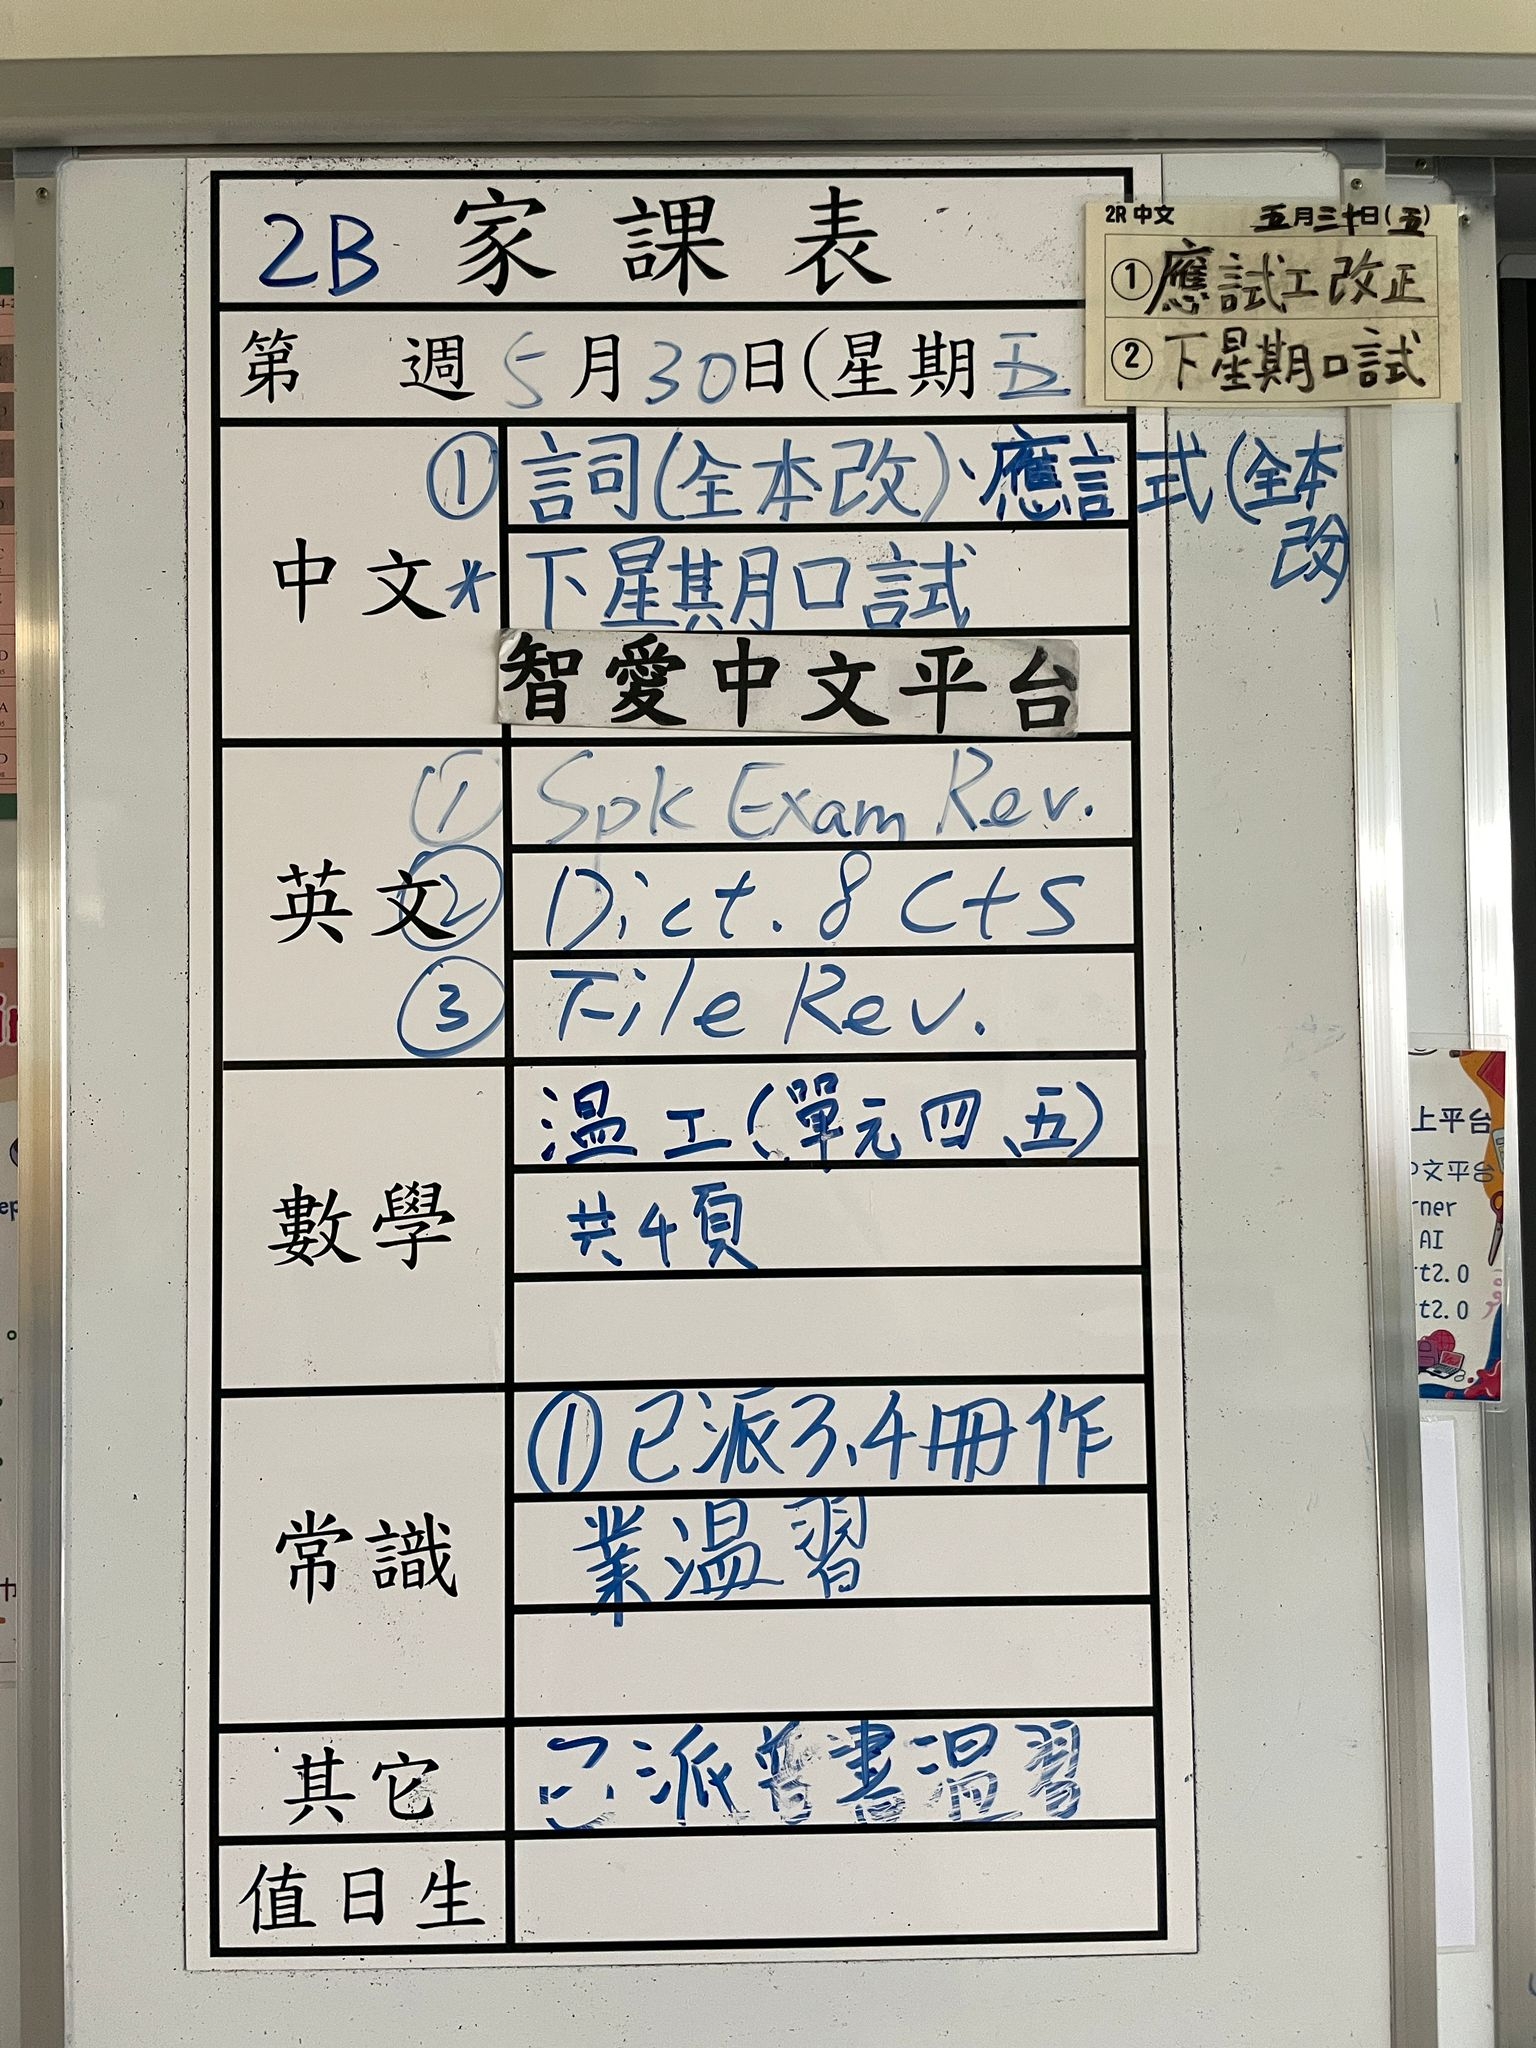 2B 家課表
第 週 5月30日(星期五
2R 中文 五月三十日(五)
① 應試工改正
② 下星期口試
中文
① 詞(全本改)、應試(全本改)
* 下星期口試
智愛中文平台
英文
① Spk Exam Rev.
② Dict. 8 Cts
③ File Rev.
數學
溫工(單元四、五)
共4頁
常識
① 已派3,4冊作
業溫習
其它
已派普書溫習
值日生
上平台
中文平台
rner
AI
rt2.0
rt2.0